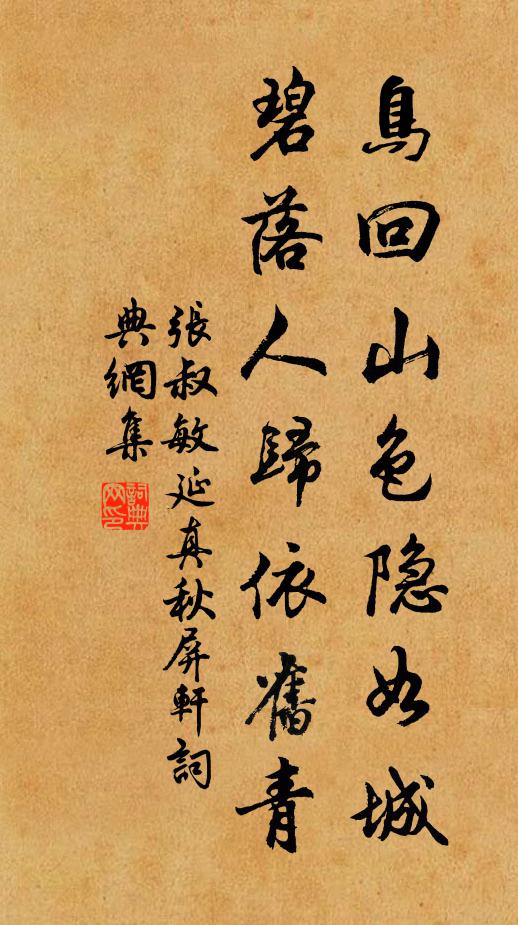 鳥回山色隐如城
碧落人歸依舊青
張叔敏延真秋屏軒詞
典網集
詞典
网印